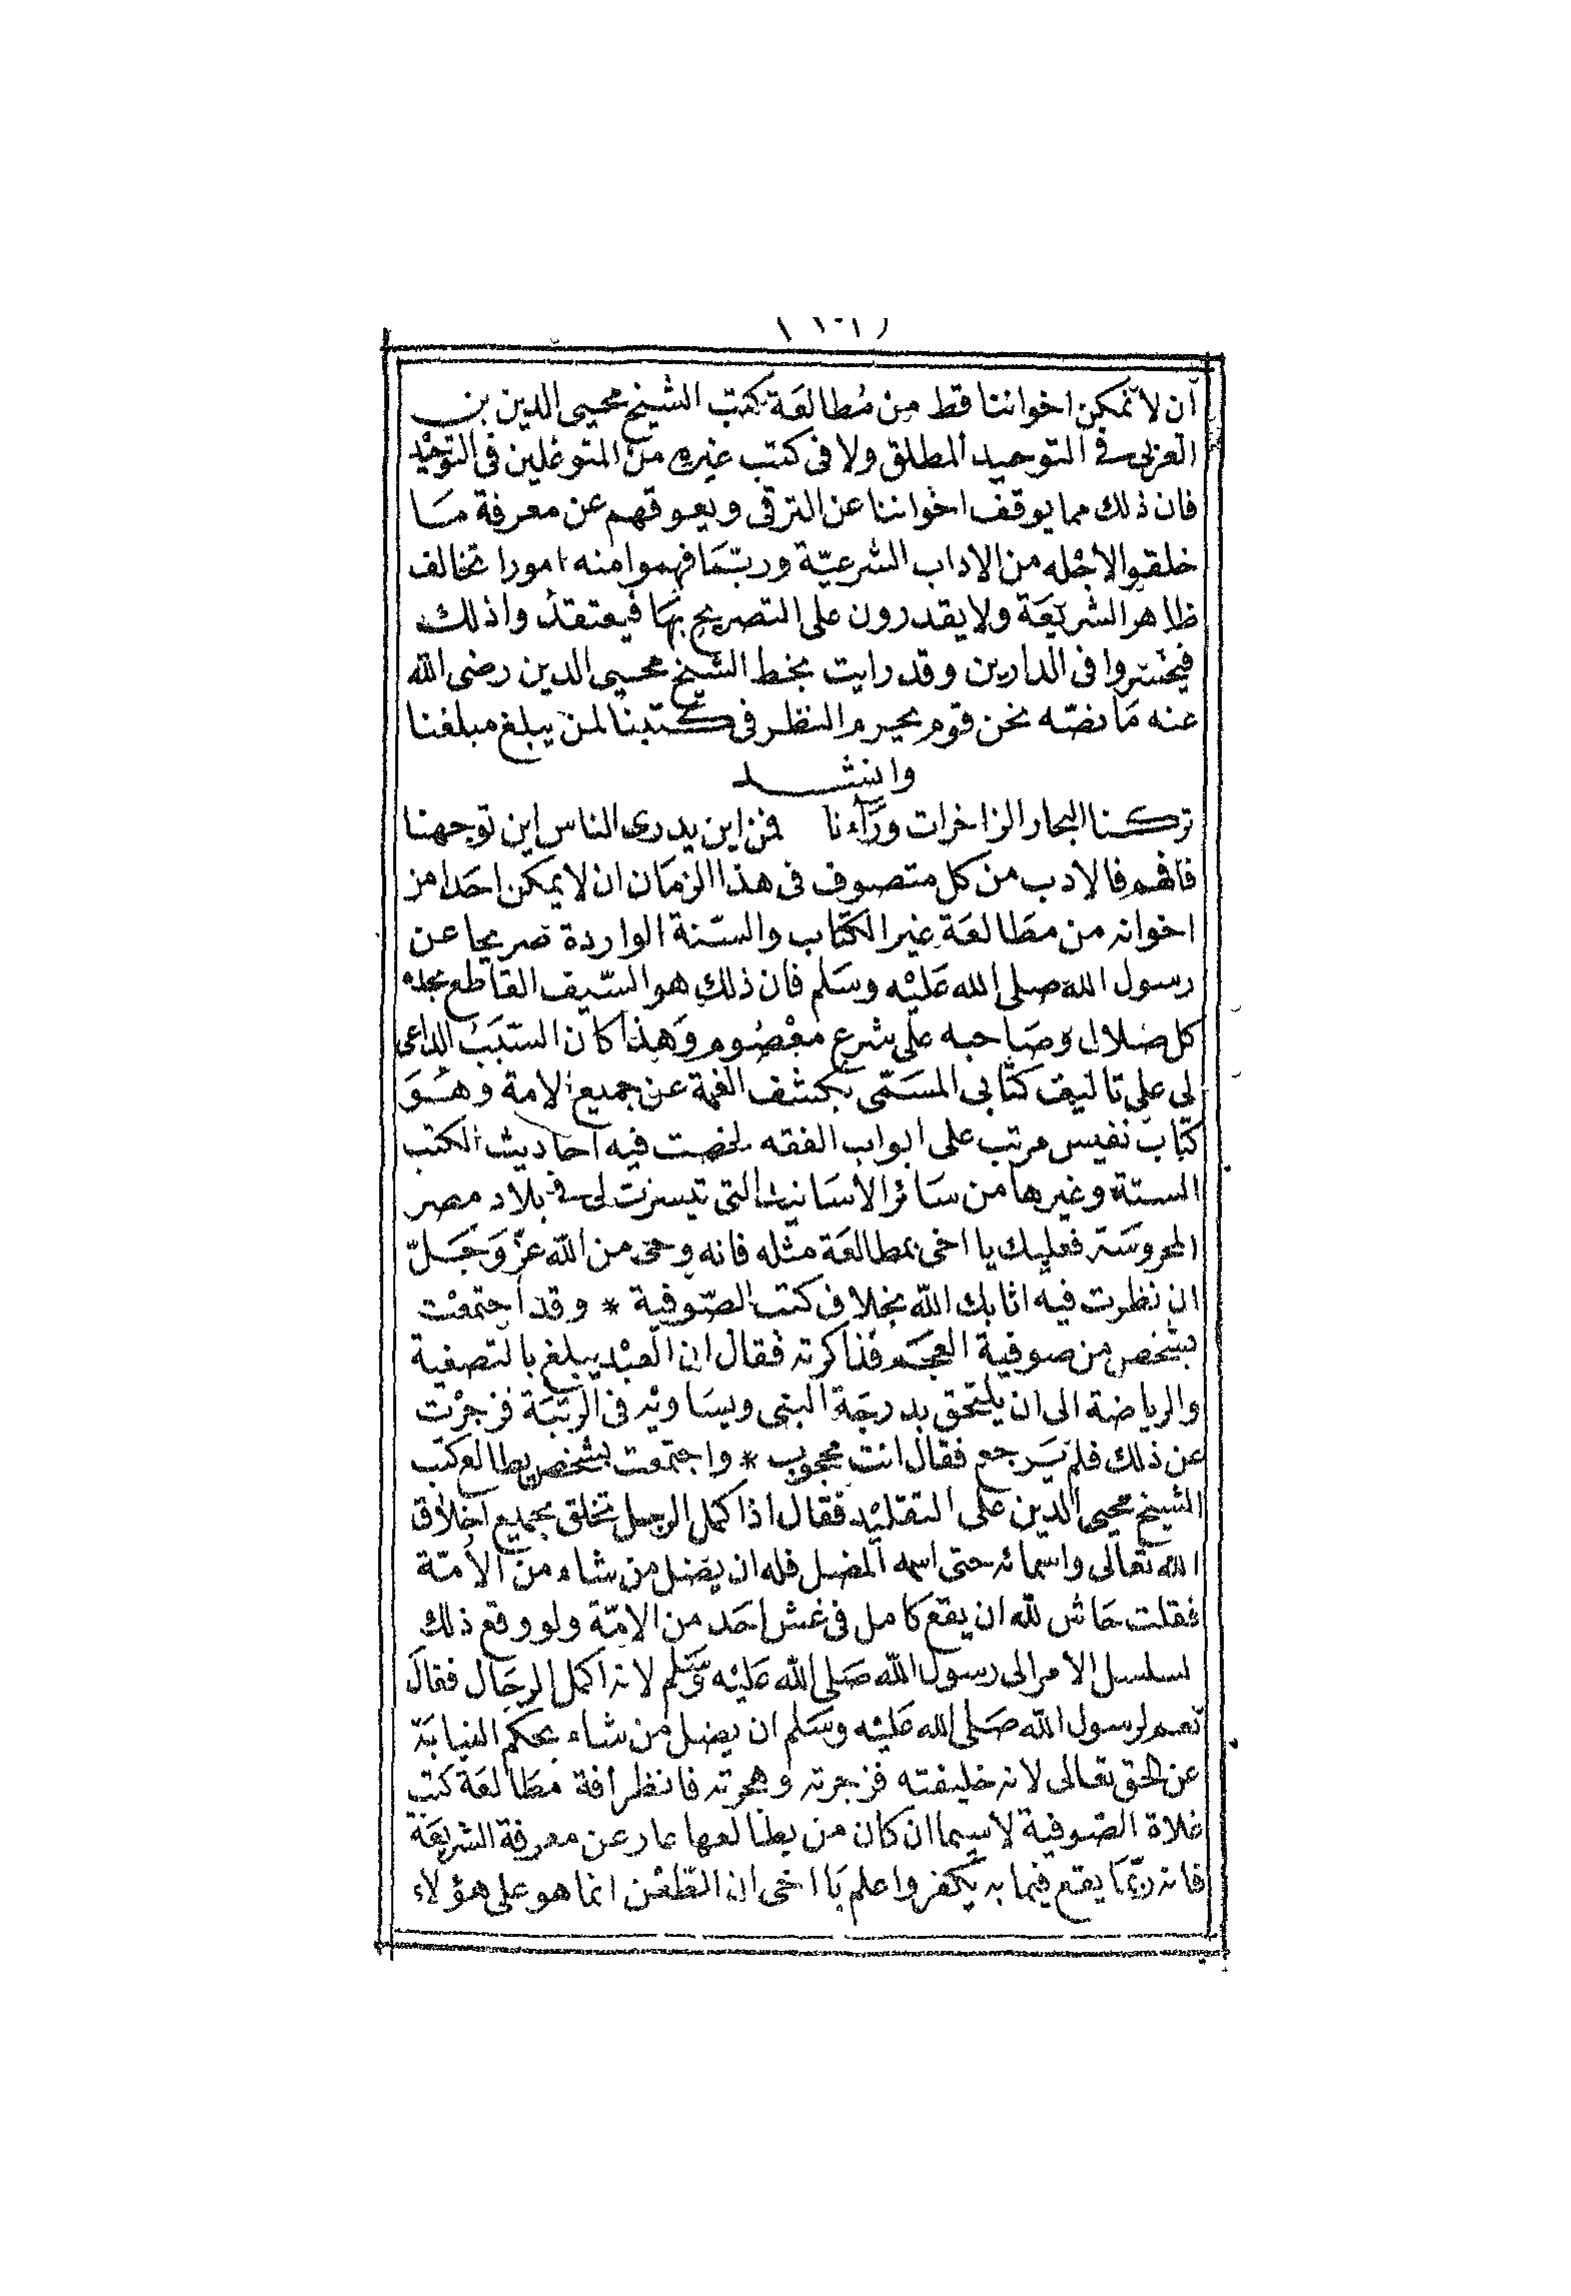 ان لا نمكن اخواننا قط من مُطالعَة كتب الشيخ محيى الدين بن
العربى فى التوحيد المطلق ولا فى كتب غيره من المتوغلين فى التوحيد
فان ذلك مما يوقف اخواننا عن الترقى ويعوقهم عن معرفة مَا
خلقوا لأجْله من الاداب الشرعيّة وربّمَا فهموا منه امورا تخالف
ظاهر الشريعَة ولا يقدرون على التصريح بهَا فيعتقدوا ذلك
فيخسروا فى الدارين وقد رايت بخط الشيخ محيى الدين رضى الله
عنه مَا نصّه نحن قوم يحرم النظر فى كتبنا لمن يبلغ مبلغنا
وانشد
تركنا البحار الزاخرات ورَآءنا فمن اين يدرى الناس اين توجهنا
فافهم فالادب من كل متصوف فى هذا الزمَان ان لا يمكن احَدا من
اخوانه من مطَالعَة غير الكتاب والسّنة الواردة صريحا عن
رسول الله صلى الله عَليْه وسَلم فان ذلك هو السّيف القاطع بحده
كل ضلال وصَاحبه على شرع معْصُوم وَهذا كان السّبَبُ الداعى
لى على تاليف كتابى المسَمّى بكشف الغمة عن جميع الامة وهُوَ
كتاب نفيس مرتب على ابواب الفقه لخصت فيه احاديث الكتب
الستة وغيرها من سَائر الاسَانيد التى تيسرت لى فى بلاد مصر
المحروسَة فعليك يا اخى بمطالعَة مثله فانه وحى من الله عزّ وَجَلّ
ان نظرت فيه اثابك الله بخلاف كتب الصّوفية * وقد اجتمعْت
بشخص من صوفية العجَم فذاكرته فقال ان العبْد يبلغ بالتصفية
والرياضة الى ان يلتحق بدرجَة النبى ويسَاويْه فى الرتبَة فزجرْت
عن ذلك فلم يَرجع فقال انت محجوب * واجتمعت بشخص يطالع كتب
الشيخ محيى الدين على التقليْد فقال اذا كمل الرجل تخلق بجميع اخلاق
الله تعَالى واسمائه حتى اسمه المضل فله ان يضل من شاء من الأمّة
فقلت حَاش لله ان يقع كامل فى غش احَد من الامّة ولو وقع ذلك
لسلسل الامر الى رسول الله صَلى الله عَليْه وسَلم لانه اكمل الرجَال فقالَ
نعم لرسول الله صَلى الله عَليْه وسَلم ان يضل من شاء بحكم النيابَة
عن الحق تعَالى لانه خليفته فزجرته وهجرته فانظر افة مطَالعَة كتب
غلاة الصّوفية لاسيما ان كان من يطالعها عار عن معرفة الشريعَة
فانه ربّمَا يقع فيما به يكفر واعلم يَا اخى ان الطّعْن انما هو على هؤلاء